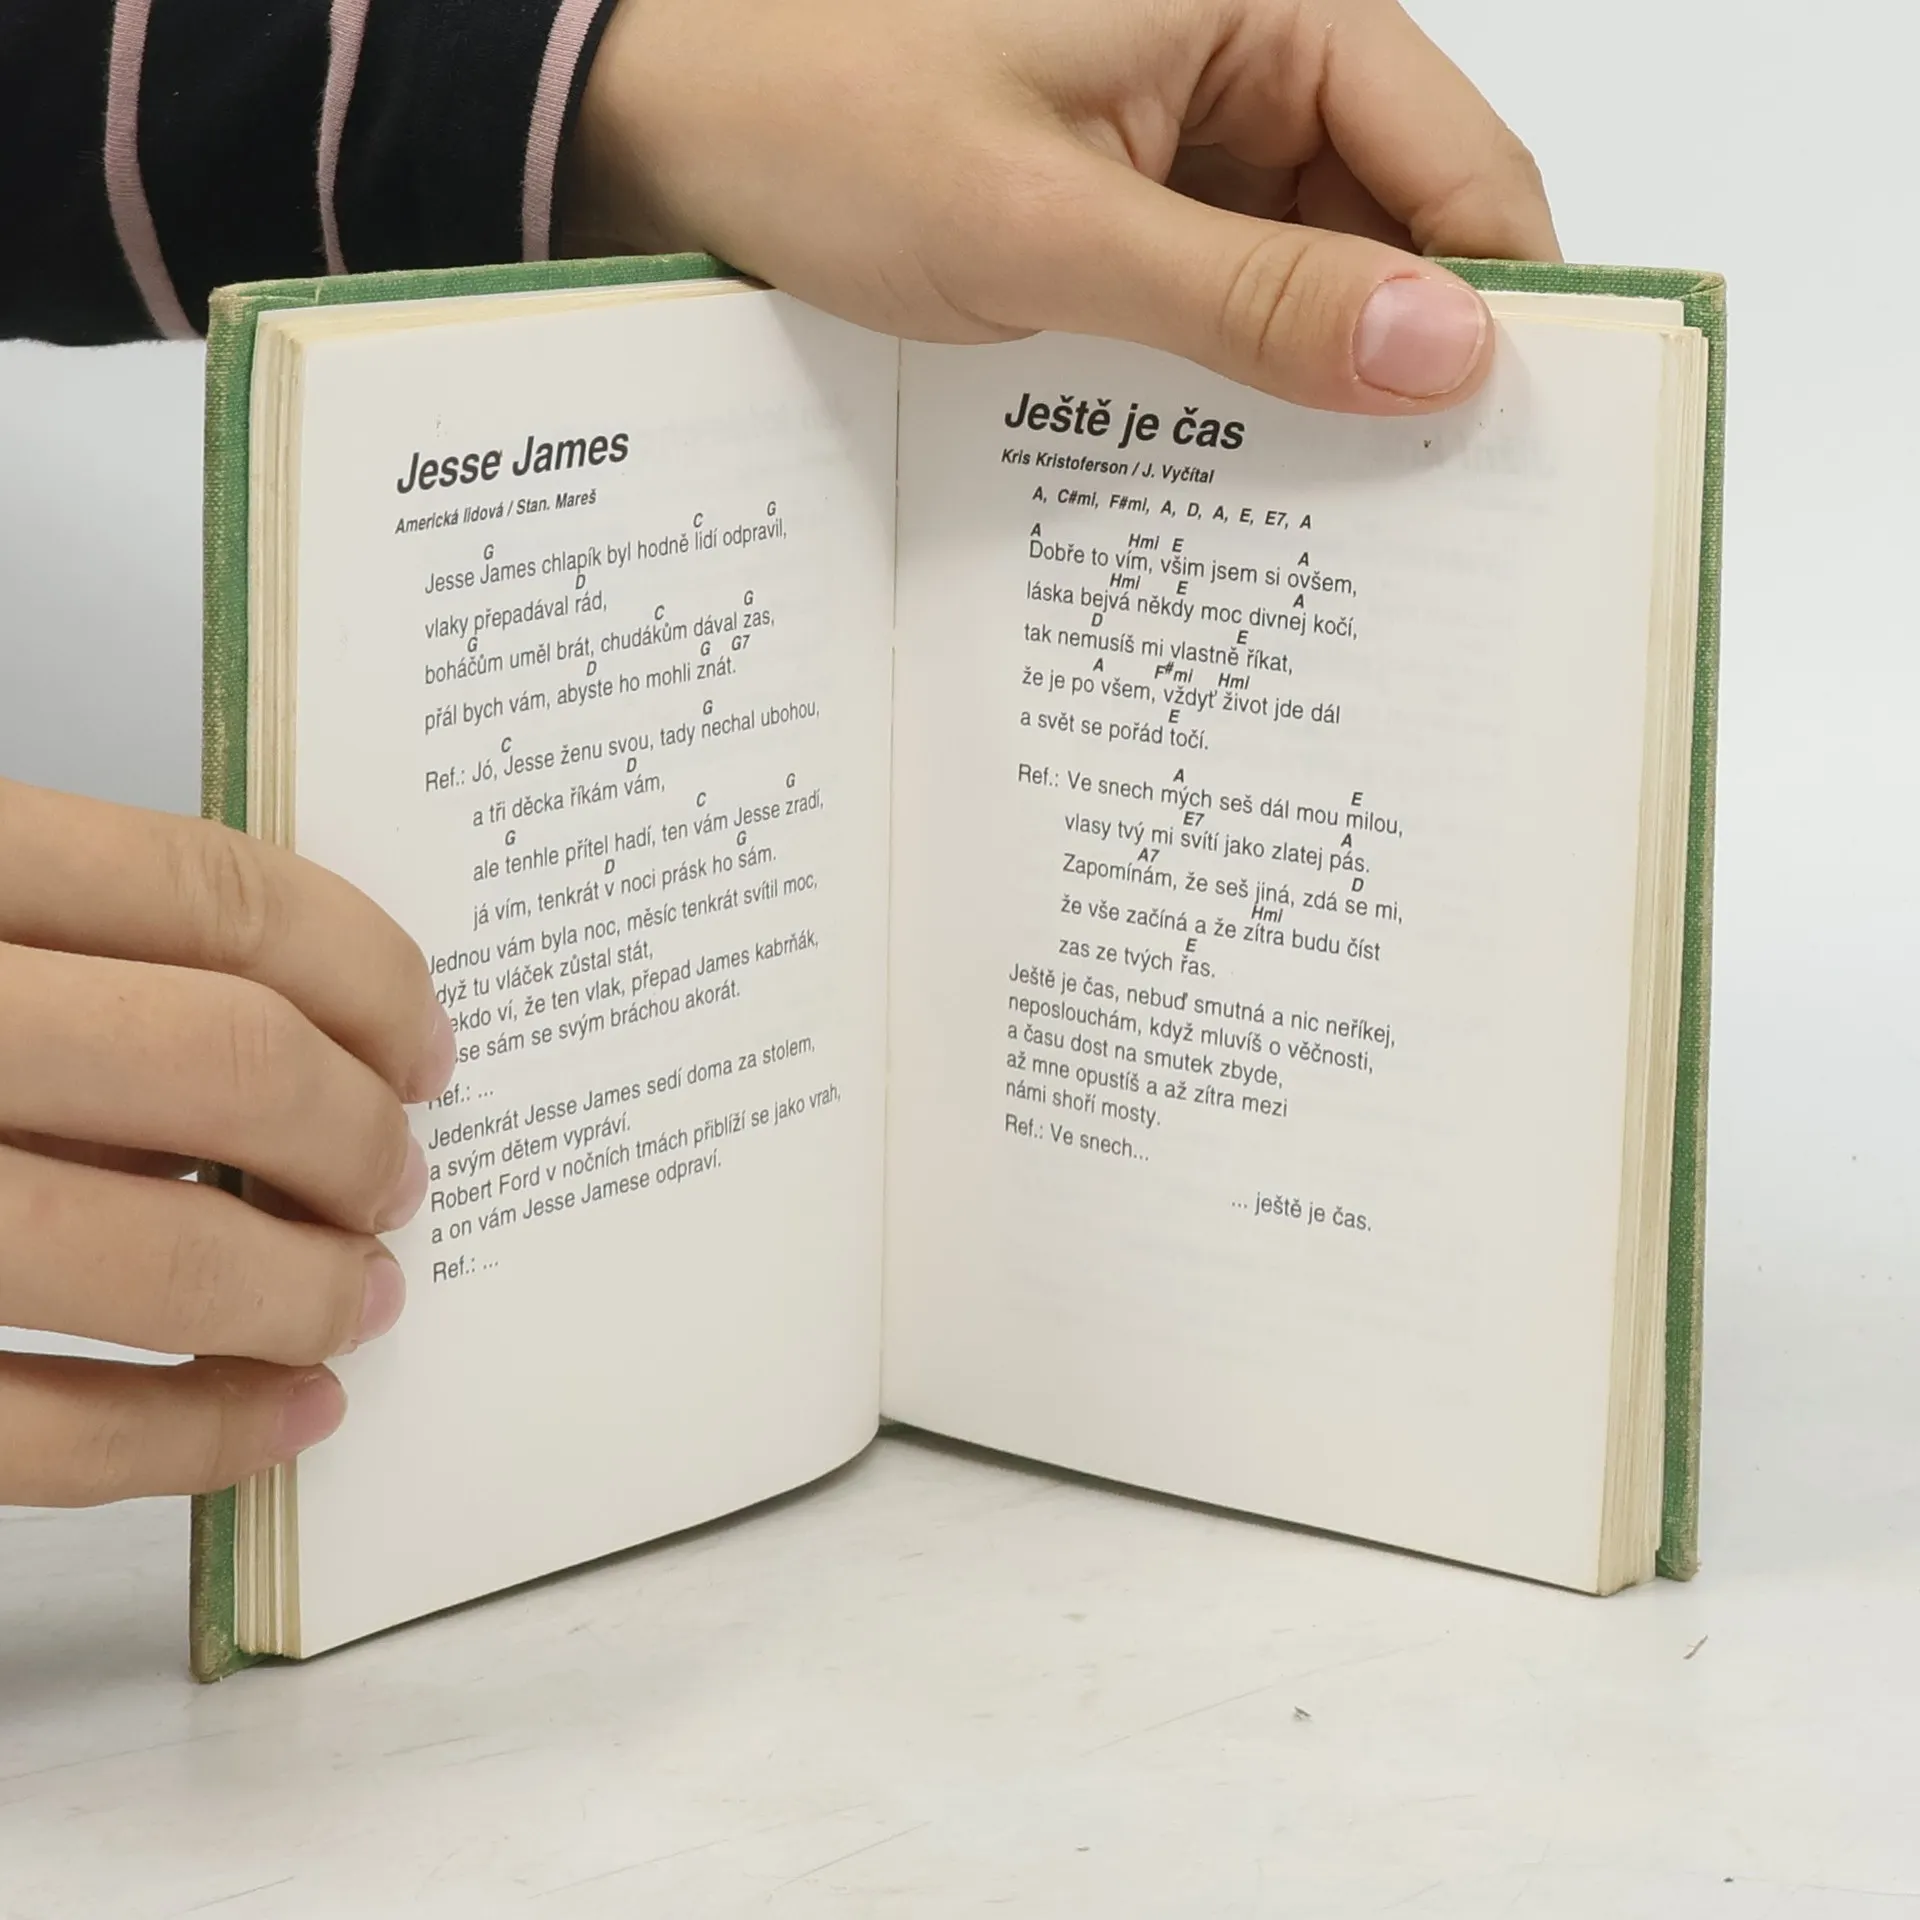 Jesse James
Americká lidová / Stan. Mareš
G C G
Jesse James chlapík byl hodně lidí odpravil,
D
vlaky přepadával rád,
G C G
boháčům uměl brát, chudákům dával zas,
D G G7
přál bych vám, abyste ho mohli znát.
C G
Ref.: Jó, Jesse ženu svou, tady nechal ubohou,
D
a tři děcka říkám vám,
G C G
ale tenhle přítel hadí, ten vám Jesse zradí,
D G
já vím, tenkrát v noci prásk ho sám.
Jednou vám byla noc, měsíc tenkrát svítil moc,
dyž tu vláček zůstal stát,
ekdo ví, že ten vlak, přepad James kabrňák,
sse sám se svým bráchou akorát.
Ref.: ...
Jedenkrát Jesse James sedí doma za stolem,
a svým dětem vypráví.
Robert Ford v nočních tmách přiblíží se jako vrah,
a on vám Jesse Jamese odpraví.
Ref.: ...
Ještě je čas
Kris Kristoferson / J. Vyčítal
A, C#mi, F#mi, A, D, A, E, E7, A
A Hmi E A
Dobře to vím, všim jsem si ovšem,
Hmi E A
láska bejvá někdy moc divnej kočí,
D E
tak nemusíš mi vlastně říkat,
A F#mi Hmi
že je po všem, vždyť život jde dál
E
a svět se pořád točí.
A E
Ref.: Ve snech mých seš dál mou milou,
E7 A
vlasy tvý mi svítí jako zlatej pás.
A7 D
Zapomínám, že seš jiná, zdá se mi,
Hmi
že vše začíná a že zítra budu číst
E
zas ze tvých řas.
Ještě je čas, nebuď smutná a nic neříkej,
neposlouchám, když mluvíš o věčnosti,
a času dost na smutek zbyde,
až mne opustíš a až zítra mezi
námi shoří mosty.
Ref.: Ve snech...
... ještě je čas.